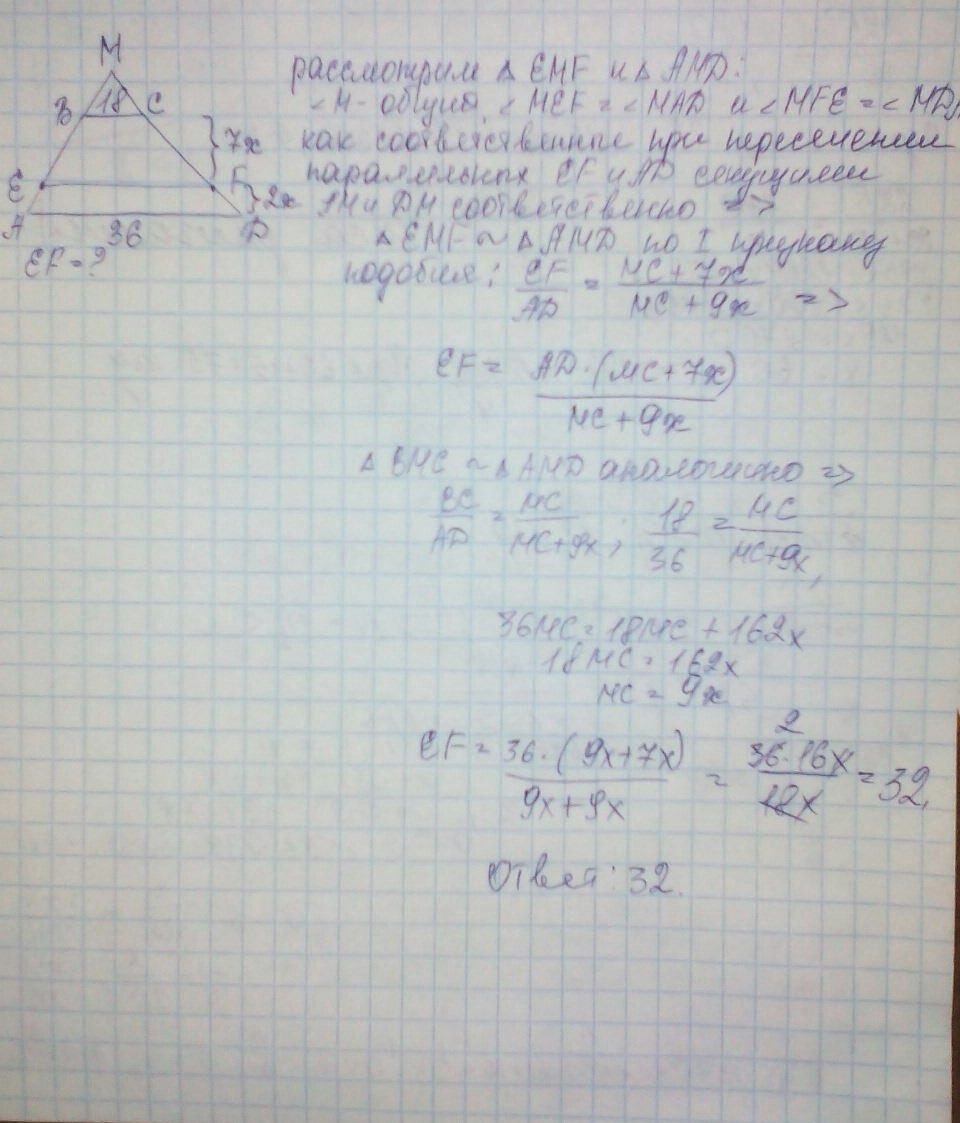 M
B 18 C
7x
E F
2x
A 36 D
EF = ?
рассмотрим △ EMF и △ AMD:
∠M - общий, ∠MEF = ∠MAD и ∠MFE = ∠MDA
как соответственные при пересечении
параллельных EF и AD секущими
AM и DM соответственно =>
△ EMF ~ △ AMD по I признаку
подобия: EF/AD = (MC + 7x)/(MC + 9x) =>
EF = AD · (MC + 7x)/(MC + 9x)
△ BMC ~ △ AMD аналогично =>
BC/AD = MC/(MC+9x); 18/36 = MC/(MC+9x),
36MC = 18MC + 162x
18MC = 162x
MC = 9x
EF = 36 · (9x + 7x)/(9x + 9x) = 2 36 · 16x/18x = 32.
Ответ: 32.